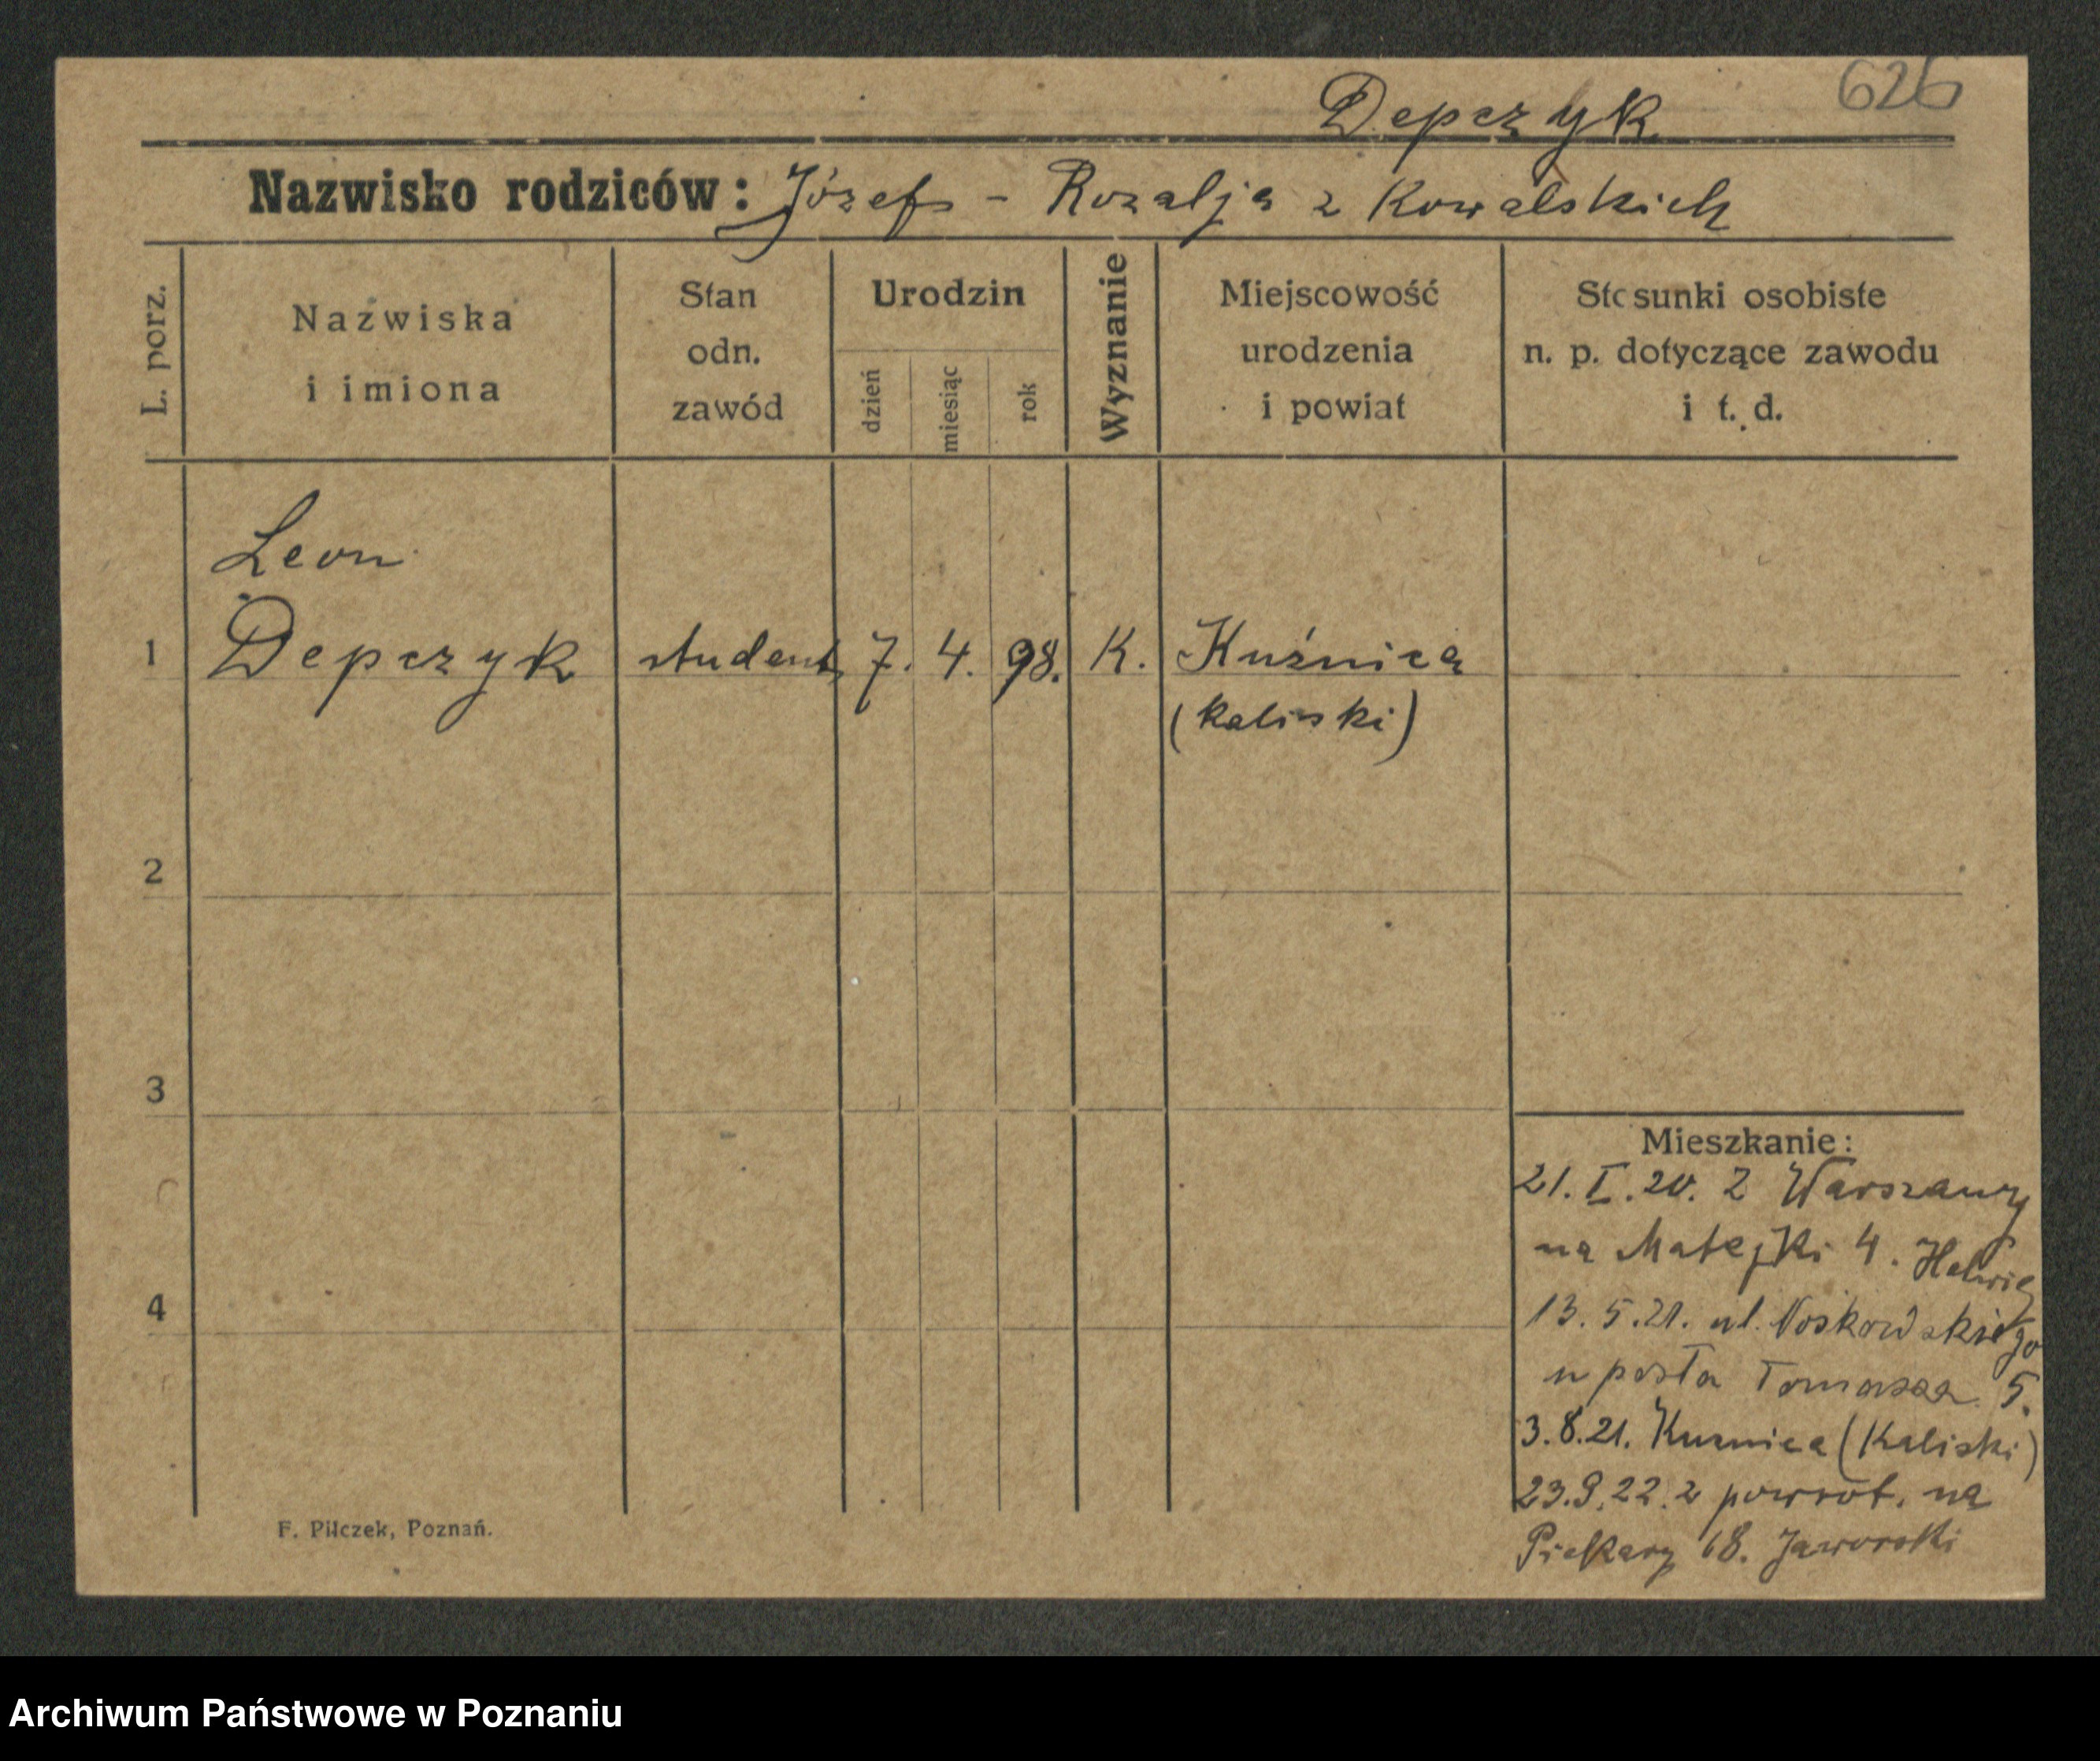 626
Depczyk
Nazwisko rodziców: Józef - Rozalja z Kowalskich
L. porz.
Nazwiska
i imiona
Stan
odn.
zawód
Urodzin
dzień
miesiąc
rok
Wyznanie
Miejscowość
urodzenia
i powiat
Stosunki osobiste
n. p. dotyczące zawodu
i t. d.
Leon
1 Depczyk student 7. 4. 98. K. Kuźnica
(kaliski)
2
3
4
Mieszkanie:
21. I. 20. Z Warszawy
na Matejki 4.
13. 5. 21. ul. Noskowskiego
u posła Tomasza 5.
3. 8. 21. Kuznica (Kaliski)
23.9.22. z powrot. na
Piekary 18. Jaworski
F. Pilczek, Poznań.
Archiwum Państwowe w Poznaniu